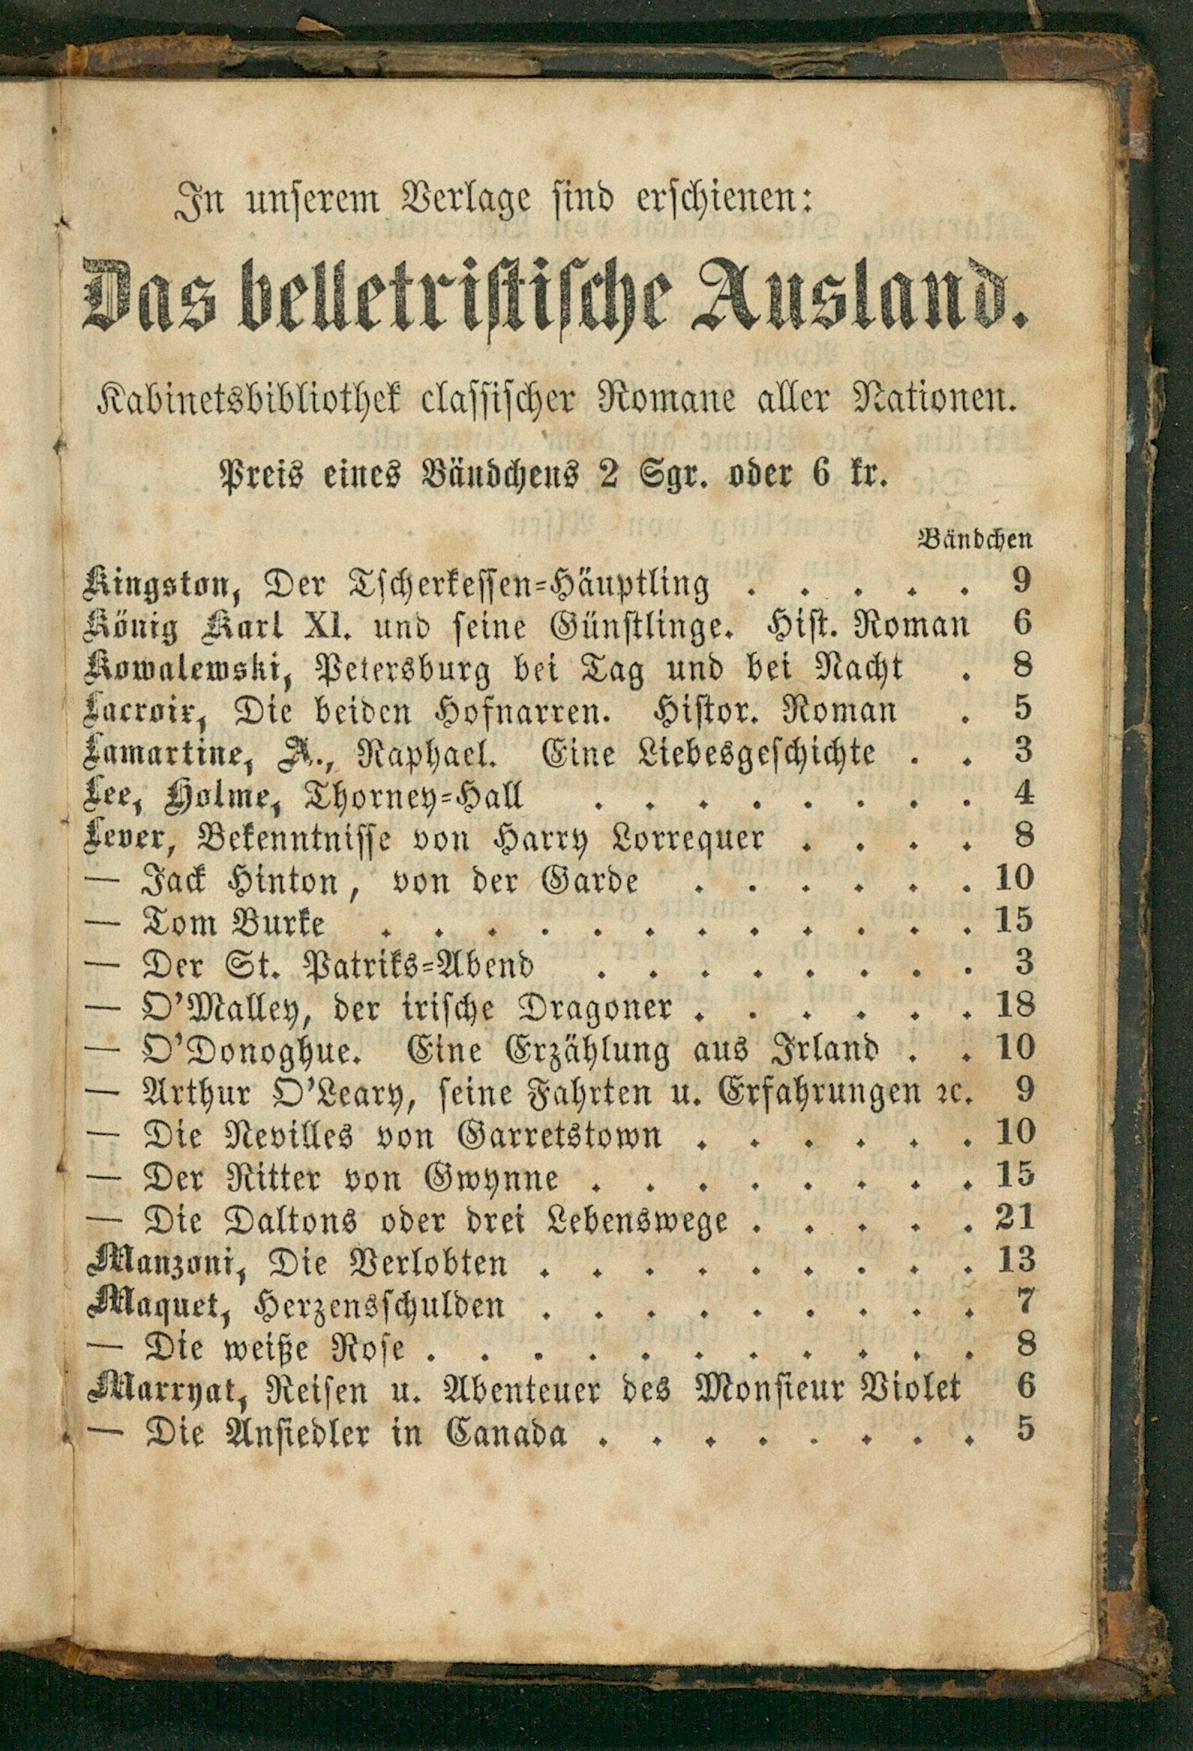 In unserem Verlage sind erschienen:
Das belletristische Ausland.
Kabinetsbibliothek classischer Romane aller Nationen.
Preis eines Bändchens 2 Sgr. oder 6 kr.
Bändchen
Kingston, Der Tscherkessen-Häuptling . . . . . 9
König Karl XI. und seine Günstlinge. Hist. Roman 6
Kowalewski, Petersburg bei Tag und bei Nacht . 8
Lacroix, Die beiden Hofnarren. Histor. Roman . 5
Lamartine, A., Raphael. Eine Liebesgeschichte . . 3
Lee, Holme, Thorney-Hall . . . . . . . . 4
Lever, Bekenntnisse von Harry Lorrequer . . . . 8
— Jack Hinton, von der Garde . . . . . . 10
— Tom Burke . . . . . . . . . . . . 15
— Der St. Patriks-Abend . . . . . . . . 3
— O'Malley, der irische Dragoner . . . . . . 18
— O'Donoghue. Eine Erzählung aus Irland . . 10
— Arthur O'Leary, seine Fahrten u. Erfahrungen ꝛc. 9
— Die Nevilles von Garretstown . . . . . . 10
— Der Ritter von Gwynne . . . . . . . . 15
— Die Daltons oder drei Lebenswege . . . . . 21
Manzoni, Die Verlobten . . . . . . . . . 13
Maquet, Herzensschulden . . . . . . . . . 7
— Die weiße Rose . . . . . . . . . . . 8
Marryat, Reisen u. Abenteuer des Monsieur Violet 6
— Die Ansiedler in Canada . . . . . . . . 5